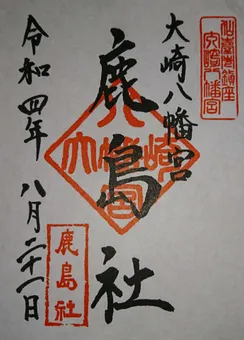 大崎八幡宮
鹿島社
令和四年 八月二十一日
大崎八幡宮
鹿島社